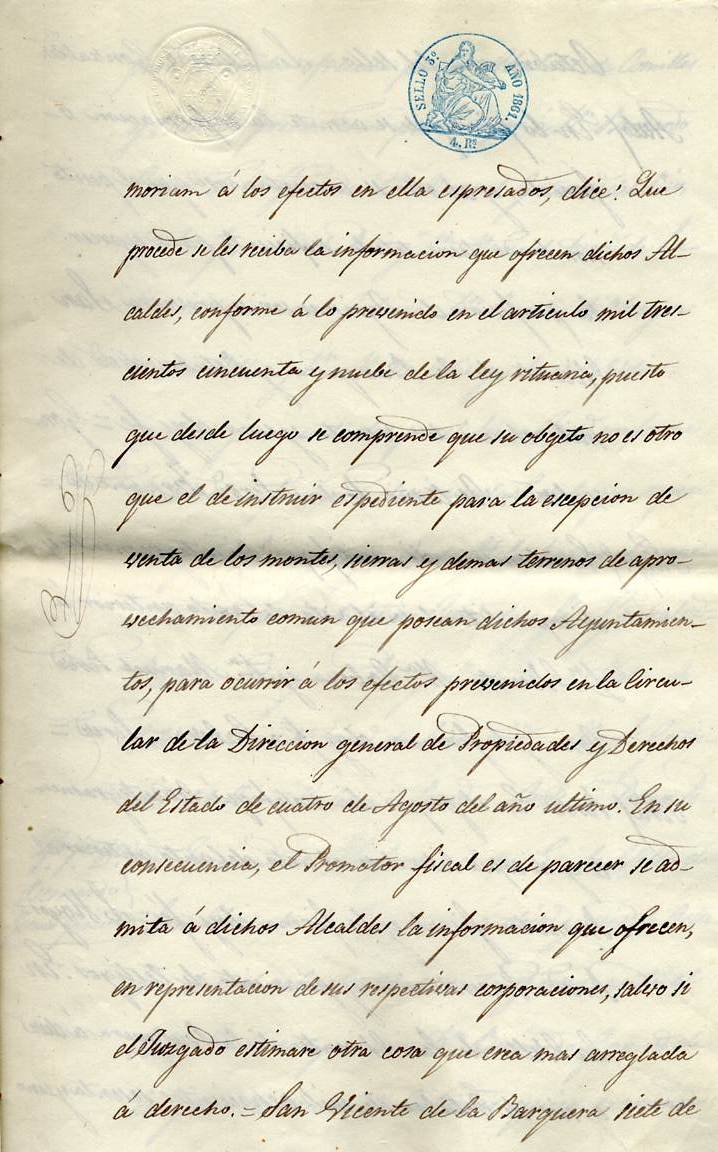 SELLO 3º AÑO 1861.
4. Rs
moriam á los efectos en ella espresados, dice: Que
procede se les reciba la informacion que ofrecen dichos Al-
caldes, conforme á lo prevenido en el articulo mil tres-
cientos cincuenta y nuebe de la ley rituaria, puesto
que desde luego se comprende que su objeto no es otro
que el de instruir espediente para la escepcion de
venta de los montes, sierras y demas terrenos de apro-
vechamiento comun que posean dichos Ayuntamien-
tos, para ocurrir á los efectos prevenidos en la Circu-
lar de la Direccion general de Propiedades y Derechos
del Estado de cuatro de Agosto del año ultimo. En su
consecuencia, el Promotor fiscal es de parecer se ad-
mita á dichos Alcaldes la informacion que ofrecen,
en representacion de sus respectivas corporaciones, salvo si
el Juzgado estimare otra cosa que crea mas arreglada
á derecho. = San Vicente de la Barquera siete de